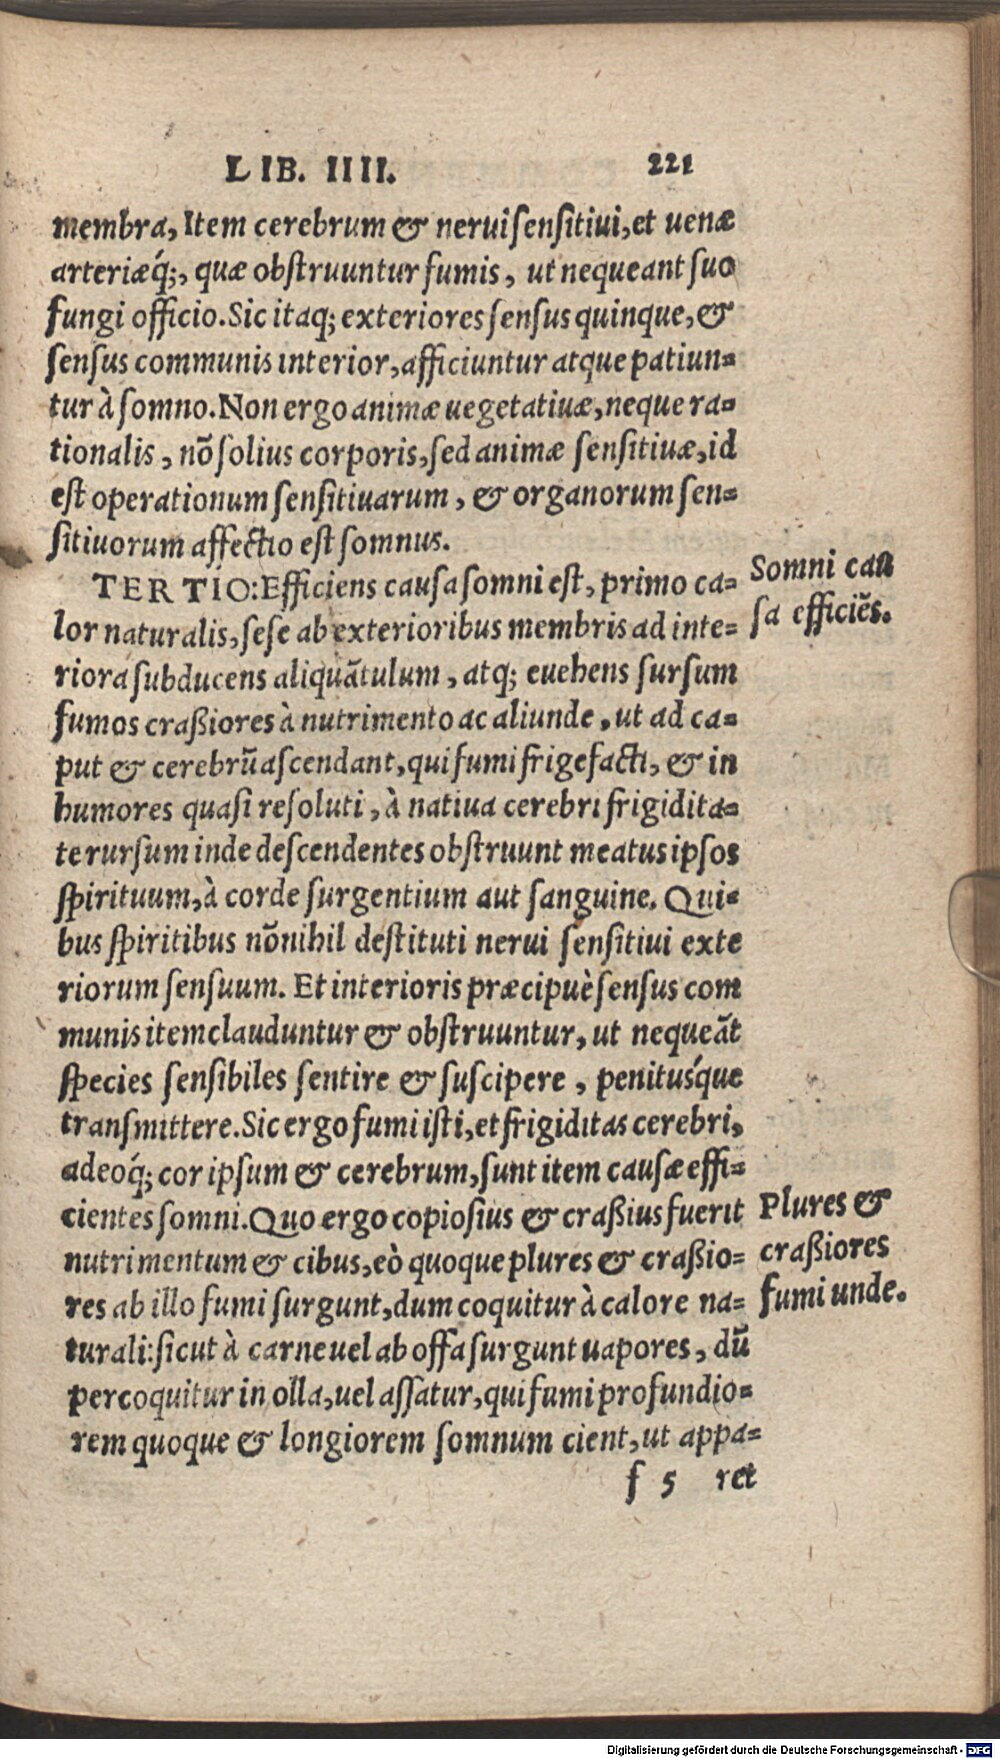 LIB. IIII. 221
membra, Item cerebrum & nerui ſenſitiui, et uenæ
arteriæq́;, quæ obſtruuntur fumis, ut nequeant ſuo
fungi officio. Sic itaq; exteriores ſenſus quinque, &
ſenſus communis interior, afficiuntur atque patiun-
tur à ſomno. Non ergo animæ uegetatiuæ, neque ra-
tionalis, nō ſolius corporis, ſed animæ ſenſitiuæ, id
eſt operationum ſenſitiuarum, & organorum ſen-
ſitiuorum affectio eſt ſomnus.
TERTIO: Efficiens cauſa ſomni eſt, primo ca-
lor naturalis, ſeſe ab exterioribus membris ad inte-
riora ſubducens aliquātulum, atq; euehens ſurſum
fumos craßiores à nutrimento ac aliunde, ut ad ca-
put & cerebrū aſcendant, qui fumi frigefacti, & in
humores quaſi reſoluti, à natiua cerebri frigidita-
te rurſum inde deſcendentes obſtruunt meatus ipſos
ſpirituum, à corde ſurgentium aut ſanguine. Qui-
bus ſpiritibus nōnihil deſtituti nerui ſenſitiui exte
riorum ſenſuum. Et interioris præcipuè ſenſus com
munis item clauduntur & obſtruuntur, ut nequeāt
ſpecies ſenſibiles ſentire & ſuſcipere, penitusq́ue
tranſmittere. Sic ergo fumi iſti, et frigiditas cerebri,
adeoq́; cor ipſum & cerebrum, ſunt item cauſæ effi-
cientes ſomni. Quo ergo copioſius & craßius fuerit
nutrimentum & cibus, eò quoque plures & craßio-
res ab illo fumi ſurgunt, dum coquitur à calore na-
turali: ſicut à carne uel ab offa ſurgunt uapores, dū
percoquitur in olla, uel aſſatur, qui fumi profundio-
rem quoque & longiorem ſomnum cient, ut appa-
f 5 ret
Somni cau
ſa efficiēs.
Plures &
craßiores
fumi unde.
Digitalisierung gefördert durch die Deutsche Forschungsgemeinschaft - DFG